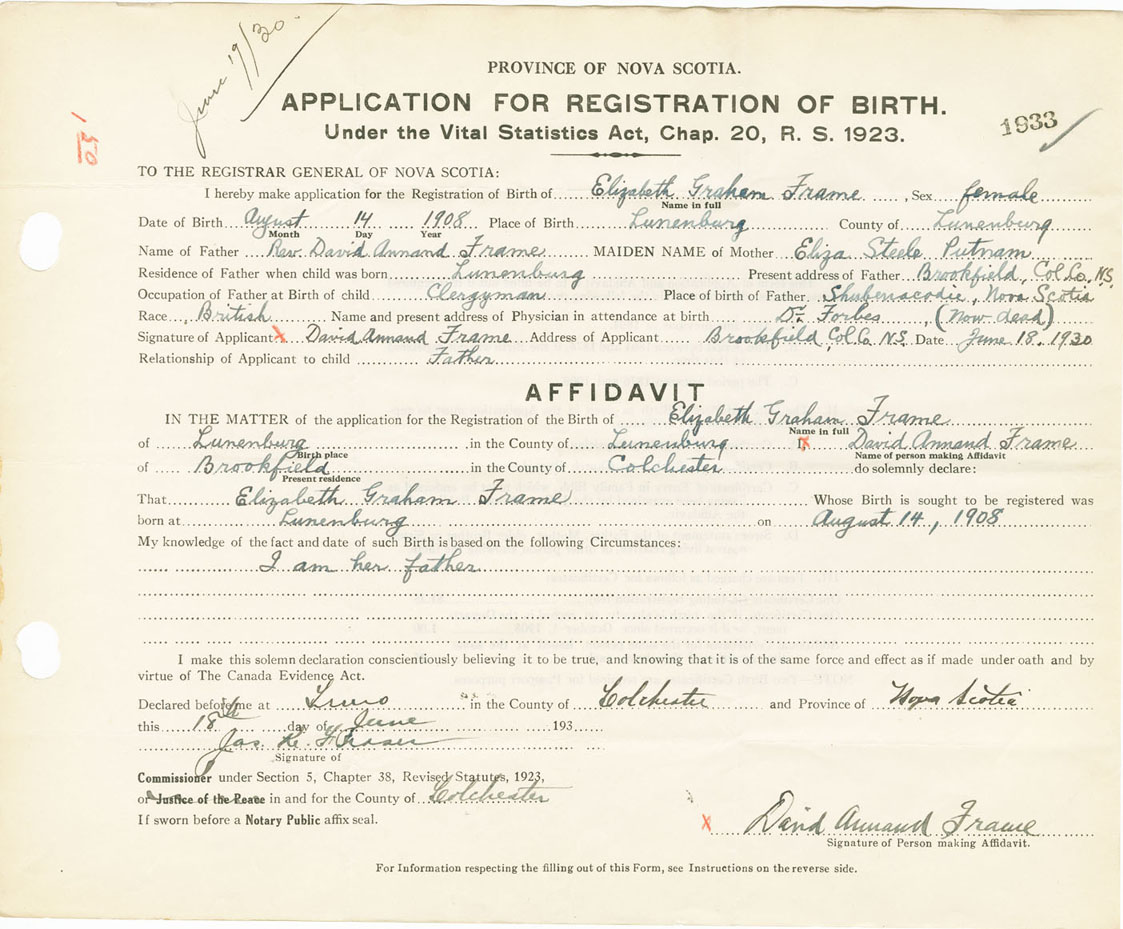 June 19/30.
PROVINCE OF NOVA SCOTIA.
APPLICATION FOR REGISTRATION OF BIRTH.
Under the Vital Statistics Act, Chap. 20, R. S. 1923.
1933
TO THE REGISTRAR GENERAL OF NOVA SCOTIA:
I hereby make application for the Registration of Birth of Elizabeth Graham Frame, Sex female
Name in full
Date of Birth August 14 1908 Place of Birth Lunenburg County of Lunenburg
Month Day Year
Name of Father Rev. David Annand Frame MAIDEN NAME of Mother Eliza Steele Putnam
Residence of Father when child was born Lunenburg Present address of Father Brookfield, Col. Co. N.S.
Occupation of Father at Birth of child Clergyman Place of birth of Father Shubenacadie, Nova Scotia
Race British Name and present address of Physician in attendance at birth Dr. Forbes (now dead)
Signature of Applicant X David Annand Frame Address of Applicant Brookfield Col. Co N.S. Date June 18. 1930
Relationship of Applicant to child Father
AFFIDAVIT
IN THE MATTER of the application for the Registration of the Birth of Elizabeth Graham Frame
Name in full
of Lunenburg in the County of Lunenburg I X David Annand Frame
Birth place Name of person making Affidavit
of Brookfield in the County of Colchester do solemnly declare:
Present residence
That Elizabeth Graham Frame Whose Birth is sought to be registered was
born at Lunenburg on August 14, 1908
My knowledge of the fact and date of such Birth is based on the following Circumstances:
I am her father
I make this solemn declaration conscientiously believing it to be true, and knowing that it is of the same force and effect as if made under oath and by
virtue of The Canada Evidence Act.
Declared before me at Truro in the County of Colchester and Province of Nova Scotia
this 18th day of June 193
Jas. K. Fraser
Signature of
Commissioner under Section 5, Chapter 38, Revised Statutes, 1923,
or Justice of the Peace in and for the County of Colchester
If sworn before a Notary Public affix seal.
X David Annand Frame
Signature of Person making Affidavit.
For Information respecting the filling out of this Form, see Instructions on the reverse side.